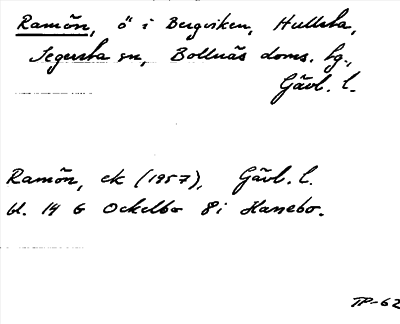 Ramön, ö i Bergviken, Hullsta,
Segersta sn, Bollnäs doms. tg.,
Gävl. l.
Ramön, ek (1957), Gävl. l.
bl. 14 G Ockelbo 8i Hanebo.
TP-62